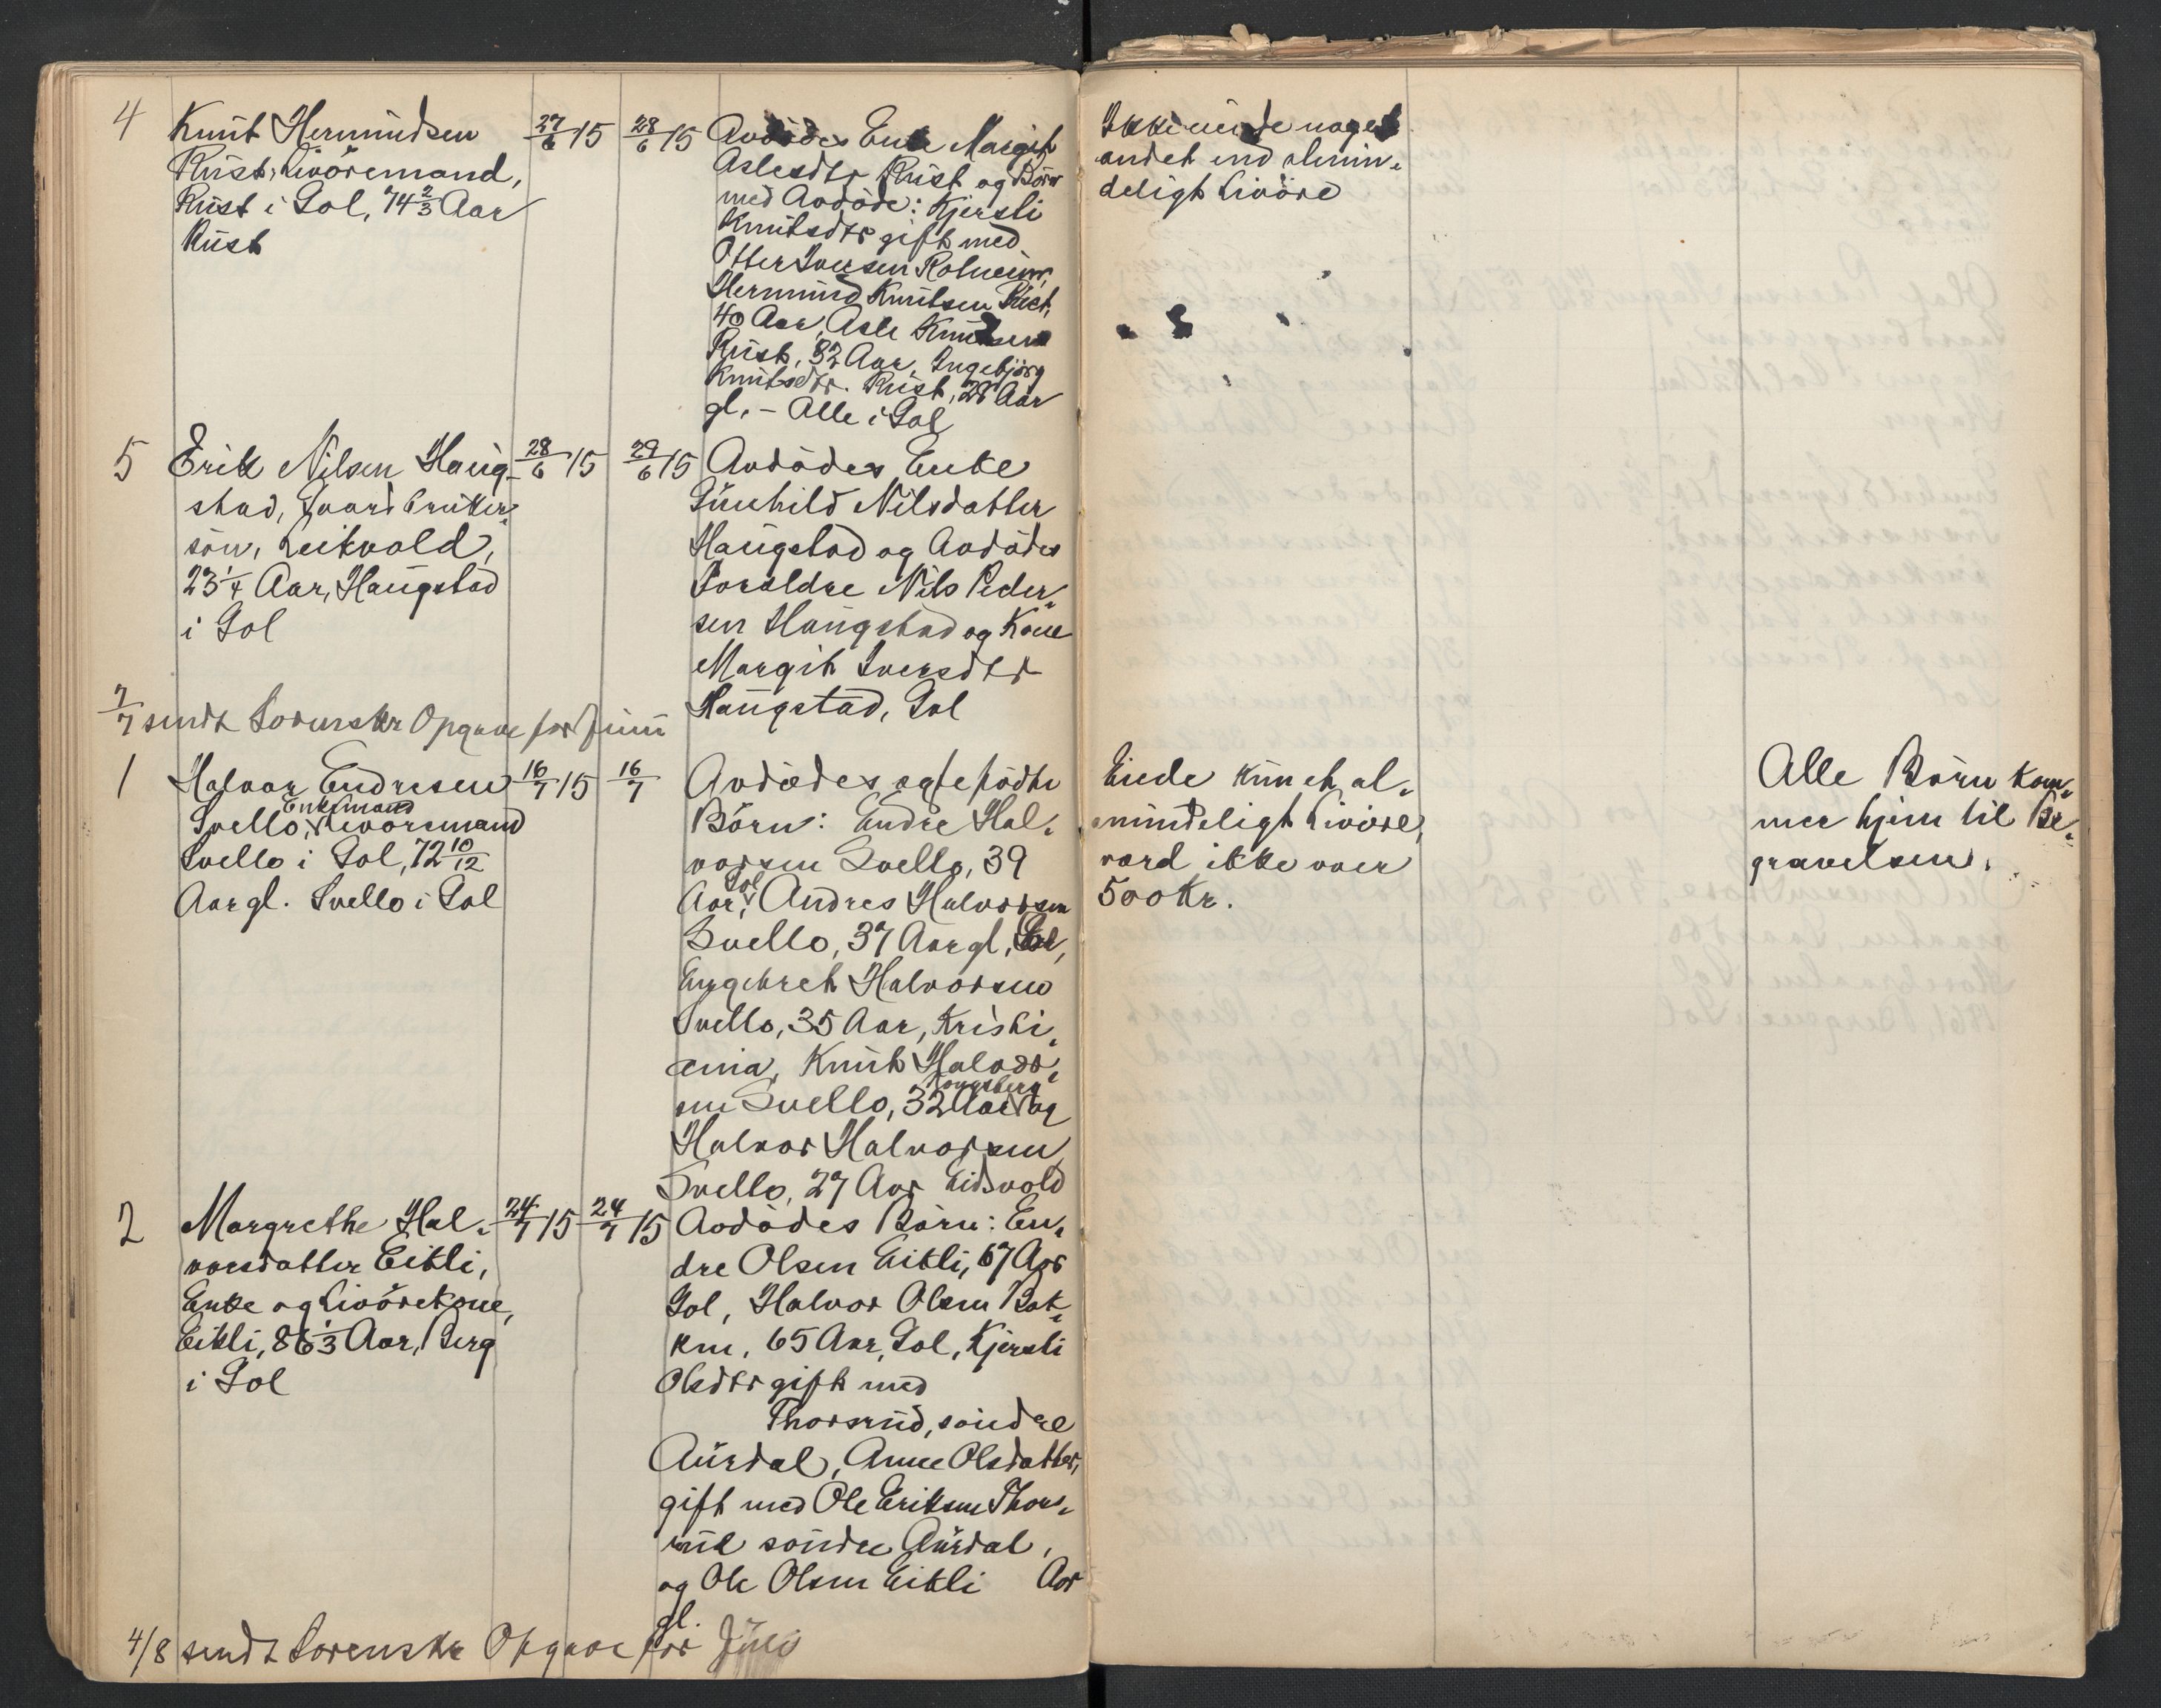 4 Knut Hermundsen 27/6 15 28/6 15
Rust, Livöremand,
Rust i Gol, 74 2/3 Aar
Rust
Avdödes Enke Margit
Aslesdtr Rust og Börn
med Avdöde: Kjersti
Knutsdtr gift med
Otter Iversen Rotneim,
Hermund Knutsen Rust,
40 Aar, Asle Knutsen
Rust, 32 Aar, Ingebjörg
Knutsdtr. Rust, 28 Aar
gl. - Alle i Gol
Ikke eiede noget
andet end almin-
deligt Livöre
5 Erik Nilsen Haug- 28/6 15 29/6 15
stad, Gaardbruker-
sön, Leikvold,
23 1/4 Aar, Haugstad
i Gol
Avdödes Enke
Gunhild Nilsdatter
Haugstad og Avdödes
Forældre Nils Peder-
sen Haugstad og Kone
Margit Iversdtr
Haugstad, Gol
7/7 sendt Sorenskr Opgave for Juni
1 Halvor Endresen 16/7 15 16/7
Enkemand
Svello, Livöremand
Svello i Gol, 72 10/12
Aar gl. Svello i Gol
Avdödes ægtefödte
Börn: Endre Hal-
vorsen Svello, 39
Aar, Gol, Andres Halvorsen
Svello, 37 Aar gl, Gol,
Engebret Halvorsen
Svello, 35 Aar, Kristi-
ania, Knut Halvor-
sen Svello, 32 Aar Kongsberg og
Halvor Halvorsen
Svello, 27 Aar Eidsvold
Eiede kun et al-
mindeligt Livöre,
værd ikke over
500 Kr.
Alle Börn kom-
mer hjem til Be-
gravelsen.
2 Margrethe Hal- 24/7 15 24/7 15
vorsdatter Eikli,
Enke og Livörekone,
Eikli, 86 1/3 Aar, Berg
i Gol
Avdödes Börn: En-
dre Olsen Eikli, 67 Aar
Gol, Halvor Olsen Bak-
ken, 65 Aar, Gol, Kjersti
Olsdtr gift med
Thorsrud, söndre
Aurdal, Anne Olsdatter,
gift med Ole Eriksen Thors-
rud söndre Aurdal,
og Ole Olsen Eikli Aar
gl.
4/8 sendt Sorenskr Opgave for Juli